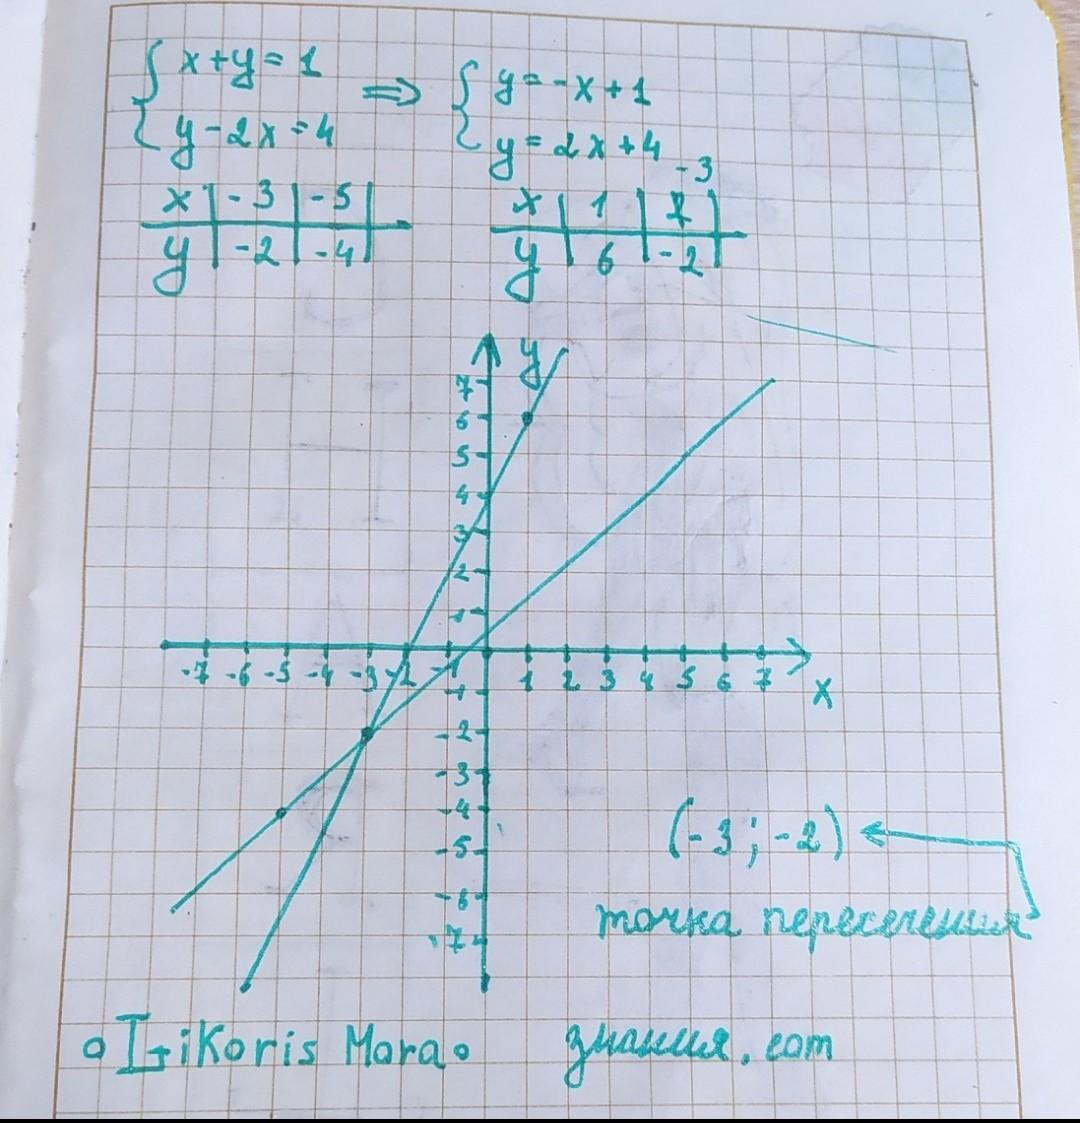 x+y=1 ⇒ y=-x+1
y-2x=4 y=2x+4
-3
x | -3 | -5 | x | 1 | 7 |
y | -2 | -4 | y | 6 | -2 |
y
7
6
5
4
3
2
1
-7 -6 -5 -4 -3 -2 -1 1 2 3 4 5 6 7
x
-1
-2
-3
-4
-5
-6
-7
(-3;-2)
точка пересечения
LiKoris Mora знания.com